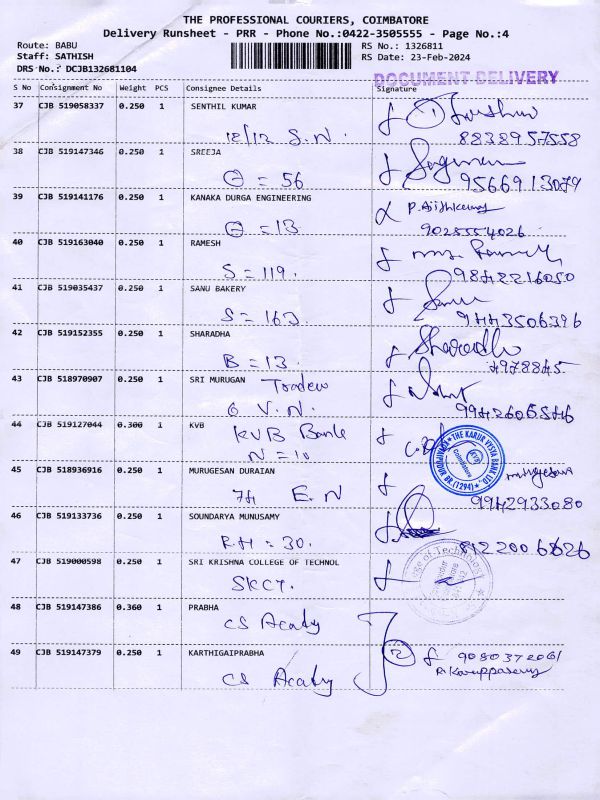 THE PROFESSIONAL COURIERS, COIMBATORE
Delivery Runsheet - PRR - Phone No.:0422-3505555 - Page No.:4
Route: BABU
Staff: SATHISH
DRS No.: DCJB132681104
RS No.: 1326811
RS Date: 23-Feb-2024
DOCUMENT DELIVERY
S No Consignment No Weight PCS Consignee Details Signature
37 CJB 519058337 0.250 1 SENTHIL KUMAR
18/12 S.N.
8838957558
38 CJB 519147346 0.250 1 SREEJA
= 56
9566913079
39 CJB 519141176 0.250 1 KANAKA DURGA ENGINEERING
= 13
P. Ajithkumar
9025554026
40 CJB 519163040 0.250 1 RAMESH
S = 119.
9842216050
41 CJB 519035437 0.250 1 SANU BAKERY
S = 163
9443506396
42 CJB 519152355 0.250 1 SHARADHA
B = 13.
Sharadha
4978845
43 CJB 518970907 0.250 1 SRI MURUGAN Traders
6 V.N.
44 CJB 519127044 0.300 1 KVB
KVB Bank
N = 10
THE KARUR VYSYA BANK LTD.
(1294)
45 CJB 518936916 0.250 1 MURUGESAN DURAIAN
74 E.N
9942933080
46 CJB 519133736 0.250 1 SOUNDARYA MUNUSAMY
R.H = 30.
47 CJB 519000598 0.250 1 SRI KRISHNA COLLEGE OF TECHNOL
SKCT.
48 CJB 519147386 0.360 1 PRABHA
CS Acady
49 CJB 519147379 0.250 1 KARTHIGAIPRABHA
CS Acady
2
9080372061
R. Karuppasamy